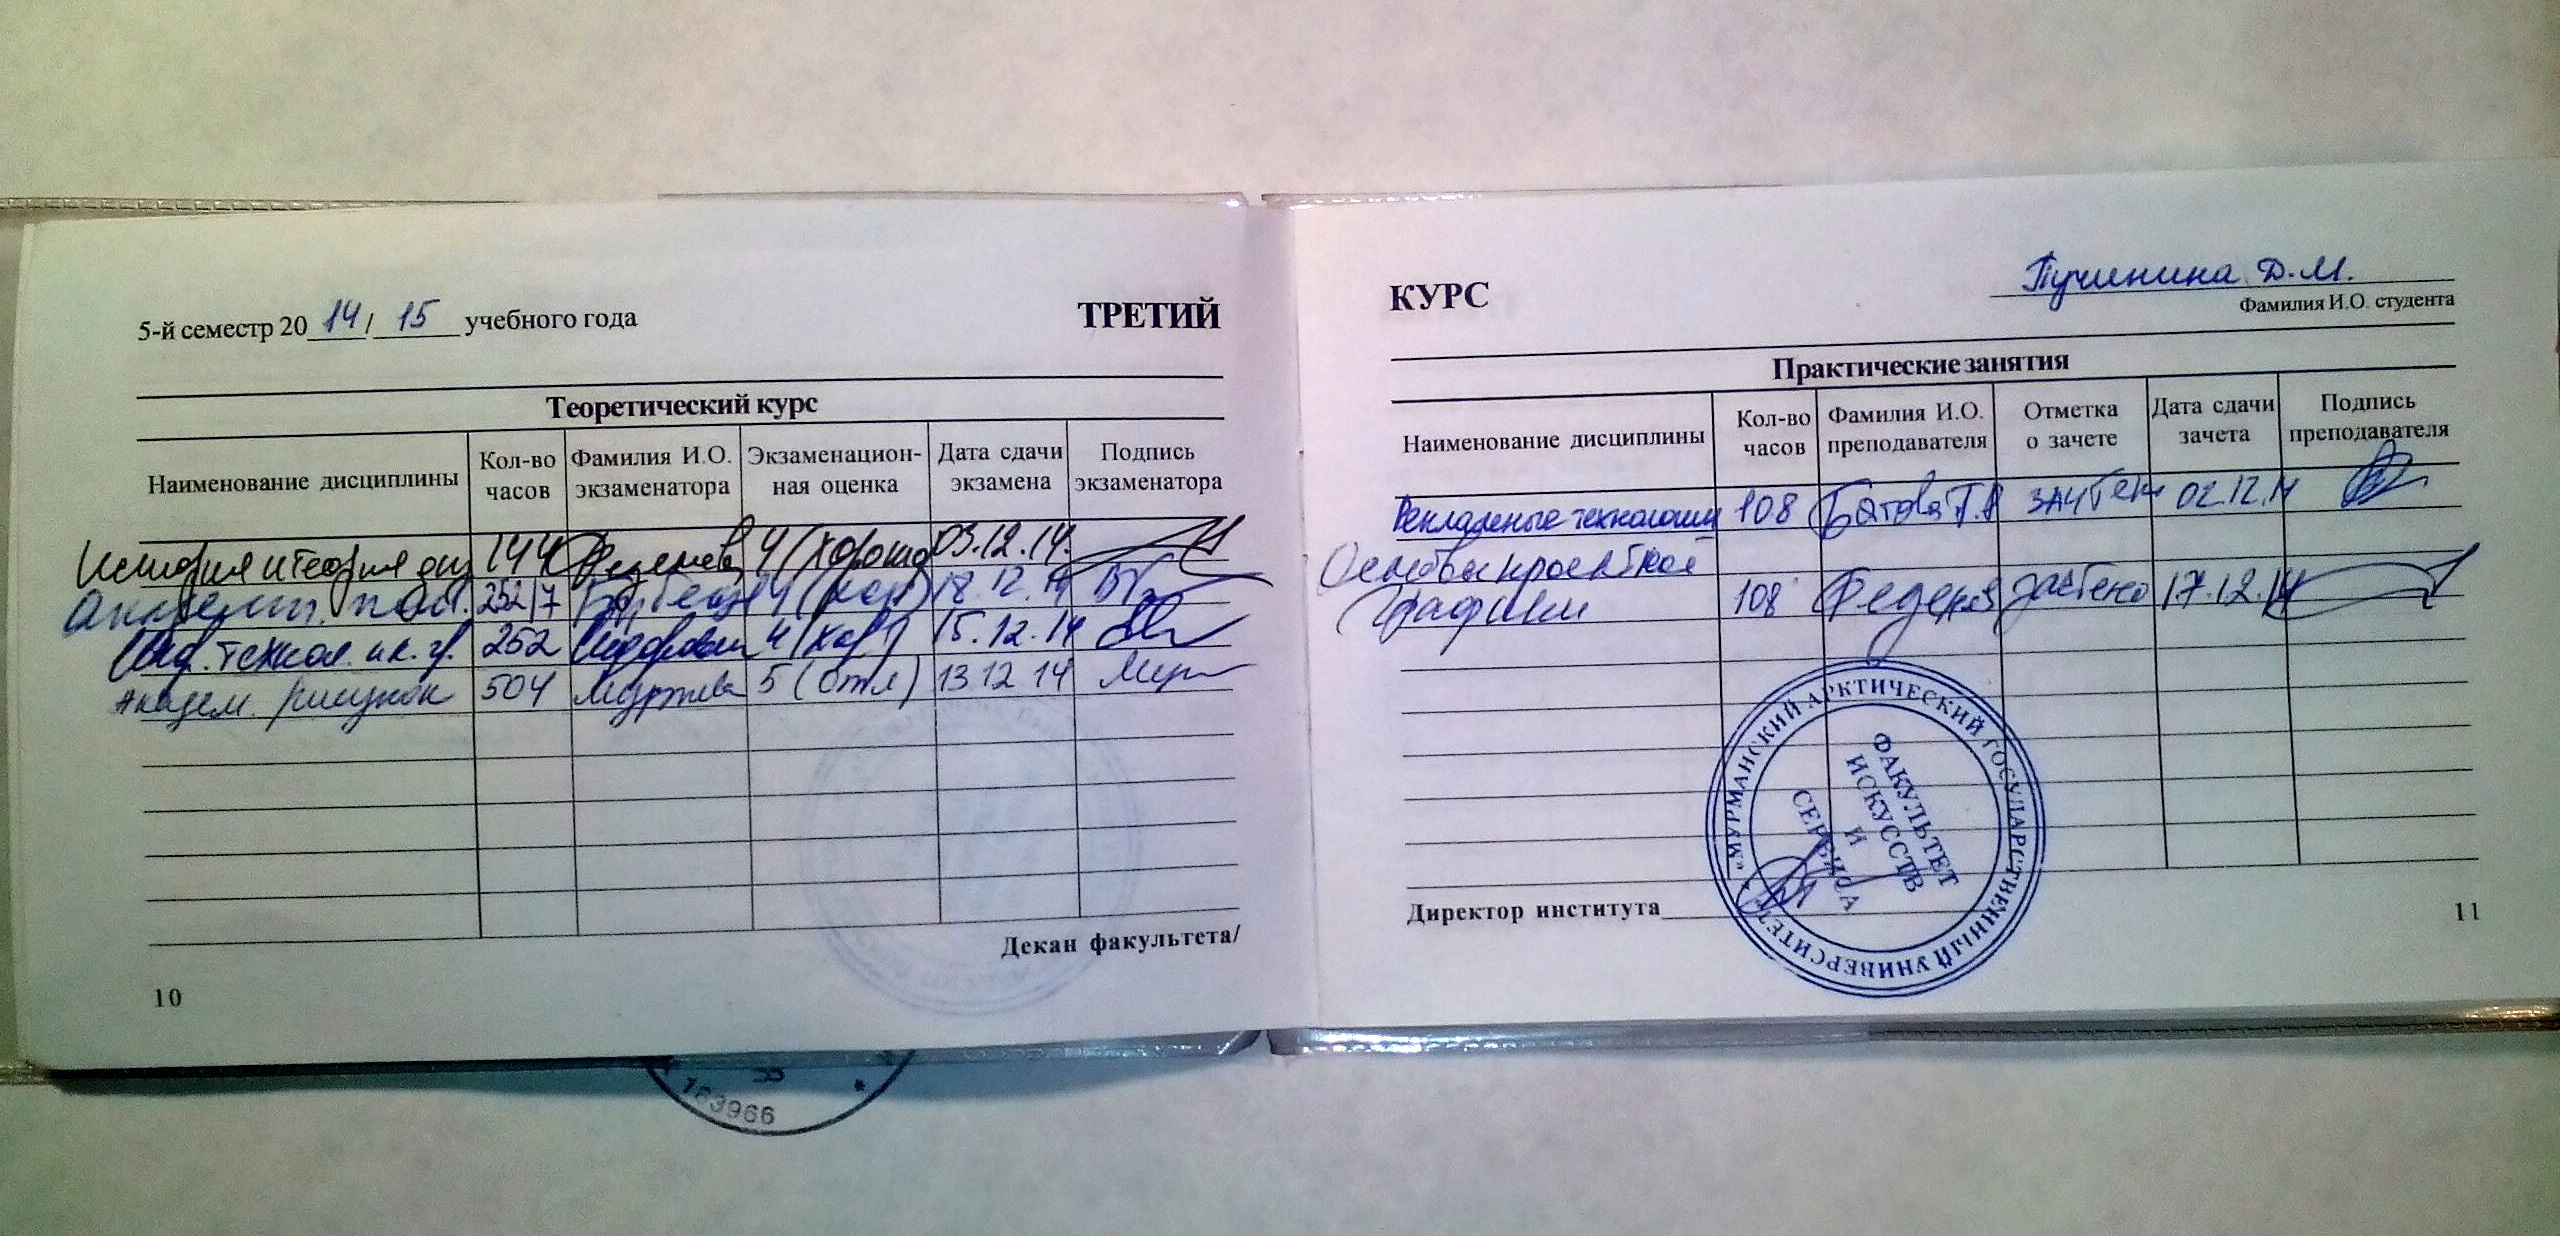 5-й семестр 20 14 / 15 учебного года
ТРЕТИЙ
Теоретический курс
Наименование дисциплины Кол-во часов Фамилия И.О. экзаменатора Экзаменацион-ная оценка Дата сдачи экзамена Подпись экзаменатора
История и теория диз 144 4 (хорошо) 03.12.14.
252/7 4 (хор) 18.12.14
технол. и к. г. 252 4 (хор) 15.12.14
Академ. рисунок 504 5 (отл) 13 12 14
Декан факультета/
10
КУРС
Пучинина Д.М.
Фамилия И.О. студента
Практические занятия
Наименование дисциплины Кол-во часов Фамилия И.О. преподавателя Отметка о зачете Дата сдачи зачета Подпись преподавателя
Рекламные технологии 108 Батова Т.А зачтен 02.12.14
Основы проектной
графики 108 зачтено 17.12.14
«МУРМАНСКИЙ АРКТИЧЕСКИЙ ГОСУДАРСТВЕННЫЙ УНИВЕРСИТЕТ»
ФАКУЛЬТЕТ
ИСКУССТВ
И
СЕРВИСА
Директор института
11
163966